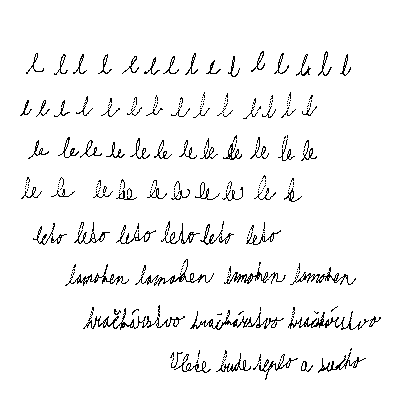 l l l l l l l l l l l l l l l
l l l l l l l l l l l l l l
le le le le le le le le le le le le
le le le le le le le le le le
leto leto leto leto leto leto
hračkárstvo hračkárstvo hračkárstvo
V lete bude teplo a sucho